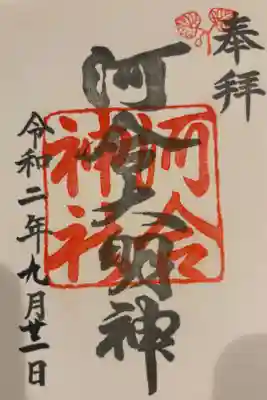 奉拝
河合大明神
河合
神社
令和二年九月廿一日